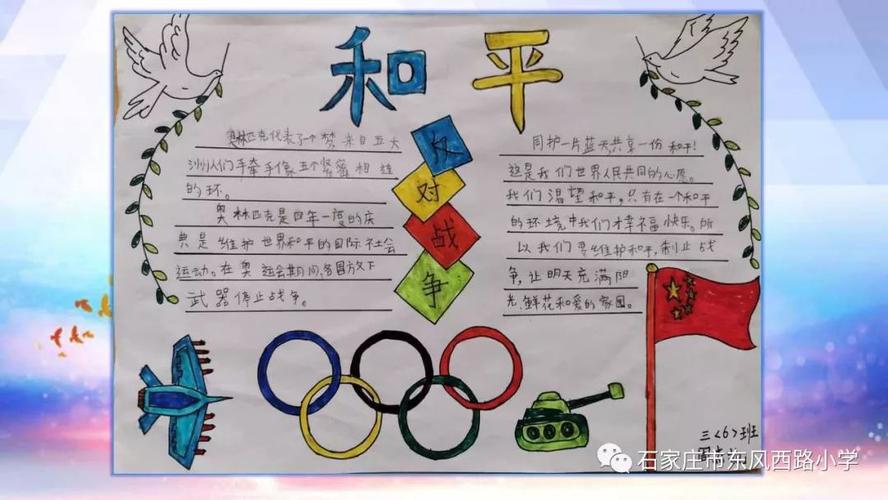 和平
奥林匹克代表了一个梦,来自五大
洲人们手牵手像五个紧密相连
的环。
奥林匹克是四年一度的庆
典是维护世界和平的国际社会
运动。在奥运会期间,各国放下
武器停止战争。
反
对
战
争
同护一片蓝天共享一份和平!
这是我们世界人民共同的心愿。
我们渴望和平,只有在一个和平
的环境中我们才幸福快乐。所
以我们要维护和平,制止战
争,让明天充满阳
光、鲜花和爱的家园。
三<6>班
石家庄市东风西路小学